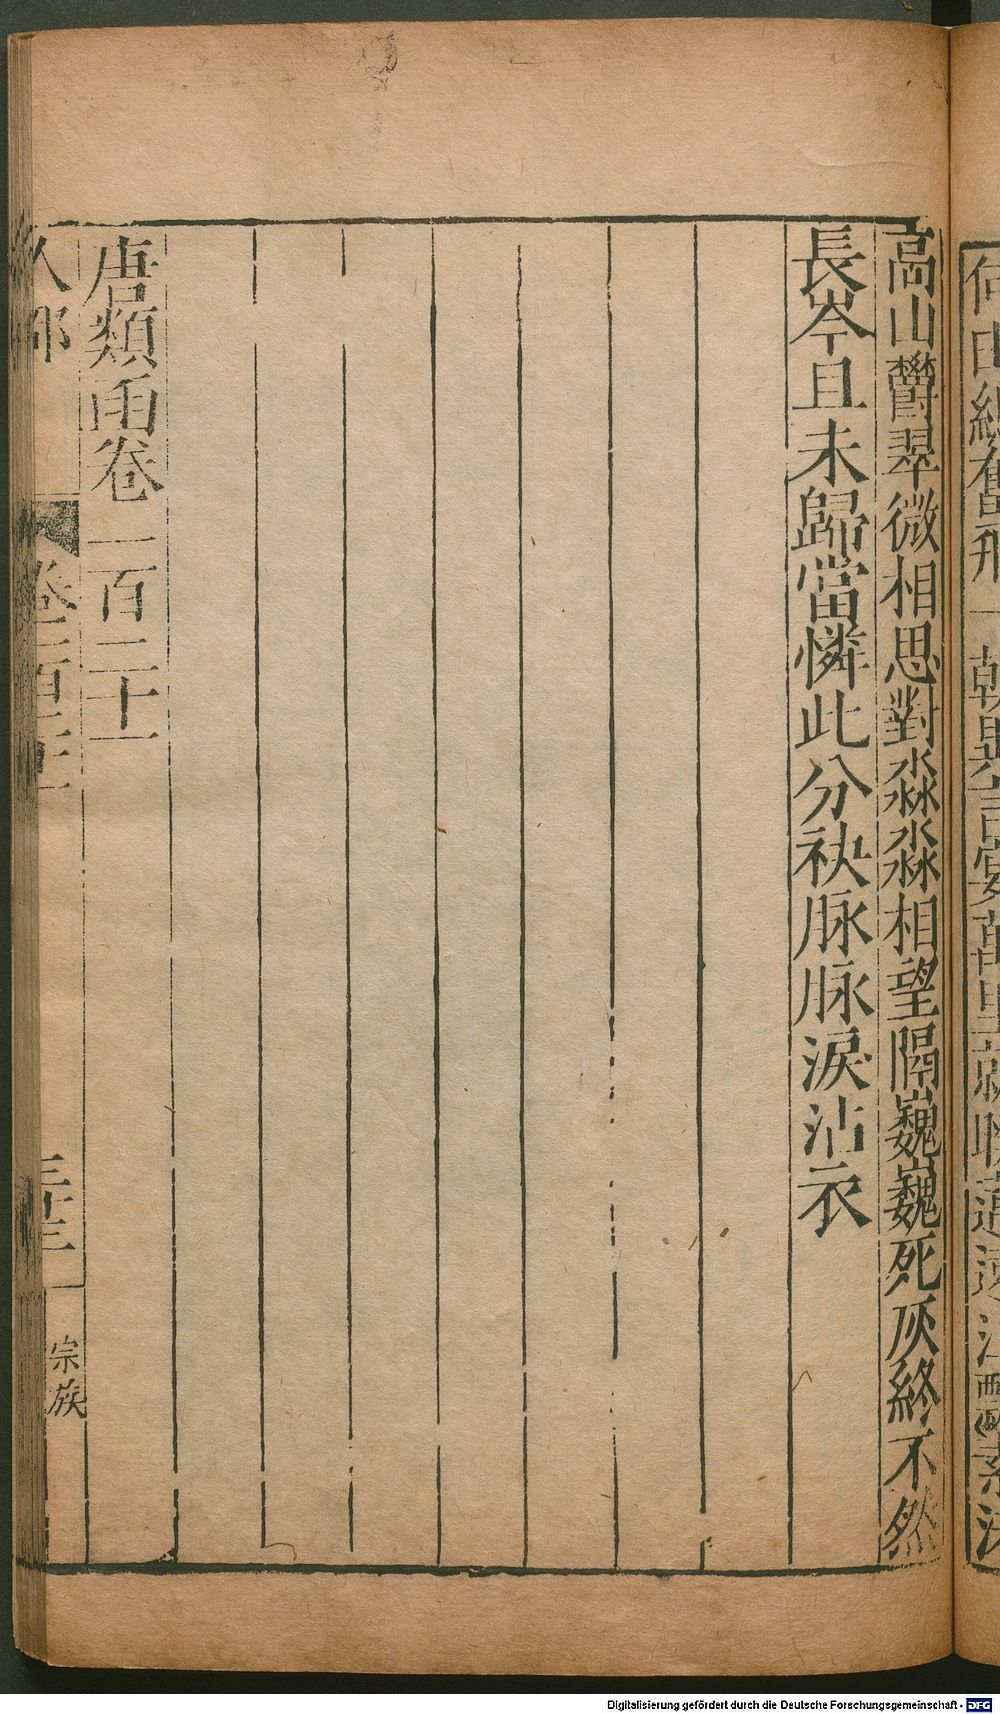 何由縱奮飛一朝異言宴萬里就
高山欝翠微相思對淼淼相望隔巍巍死灰終不然
長岑且未歸當憐此分袂脉脉淚沾衣
唐類函卷一百二十一
人部
卷一百二十一
三十三
宗族
Digitalisierung gefördert durch die Deutsche Forschungsgemeinschaft - DFG